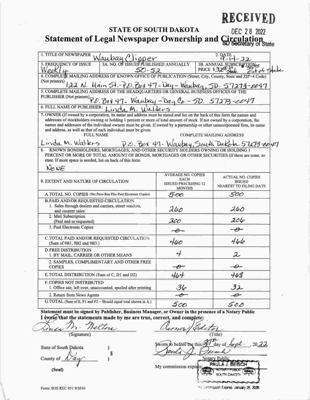 RECEIVED
DEC 28 2022
SD Secretary of State
STATE OF SOUTH DAKOTA
Statement of Legal Newspaper Ownership and Circulation
1. TITLE OF NEWSPAPER
Waubay Clipper
2. DATE
3. FREQUENCY OF ISSUE
Weekly
3A. NO. OF ISSUES PUBLISHED ANNUALLY
50-52
3B. ANNUAL SUBSCRIPTION PRICE
4. COMPLETE MAILING ADDRESS OF KNOWN OFFICE OF PUBLICATION (Street, City, County, State and ZIP+4 Code)
122 N. Main St. P.O. Box 47 - Day - Waubay, SD. 57273-0047
5. COMPLETE MAILING ADDRESS OF THE HEADQUARTERS OR GENERAL BUSINESS OFFICES OF THE PUBLISHER
P.O. Box 47 - Waubay - Day Co - SD. 57273-0047
6. FULL NAME OF PUBLISHER:
Linda M. Walters
7. OWNER (If owned by a corporation, its name and address must be stated and list on the back of this form the names and addresses of stockholders owning or holding 1 percent or more of total amount of stock. If not owned by a corporation, the names and addresses of the individual owners must be given. If owned by a partnership or other unincorporated firm, its name and address, as well as that of each individual must be given.
FULL NAME COMPLETE MAILING ADDRESS
Linda M. Walters P.O. Box 47 - Waubay, South Dakota 57273-0047
8. KNOWN BONDHOLDERS, MORTGAGEES, AND OTHER SECURITY HOLDERS OWNING OR HOLDING 1 PERCENT OR MORE OF TOTAL AMOUNT OF BONDS, MORTGAGES OR OTHER SECURITIES (If there are none, so state. If more space is needed, list on back of this form.
None
9. EXTENT AND NATURE OF CIRCULATION
AVERAGE NO. COPIES EACH ISSUED PRECEDING 12 MONTHS
ACTUAL NO. COPIES ISSUED NEAREST TO FILING DATE
A. TOTAL NO. COPIES 500 500
B. PAID AND/OR REQUESTED CIRCULATION
1. Sales through dealers and carriers, street vendors, and counter sales. 260 260
2. Mail Subscription (Paid and or requested) 200 206
3. Paid Electronic Copies -0- -0-
C. TOTAL PAID AND/OR REQUESTED CIRCULATION 460 466
D. FREE DISTRIBUTION
1. BY MAIL, CARRIER OR OTHER MEANS 4 2
2. SAMPLES, COMPLIMENTARY AND OTHER FREE COPIES -0- -0-
E. TOTAL DISTRIBUTION (Sum of C, D1 and D2) 464 468
F. COPIES NOT DISTRIBUTED
1. Office use, left over, unaccounted, spoiled after printing 36 32
2. Return from News Agents -0- -0-
G. TOTAL (Sum of E, F1 and F2 - Should equal total shown in A) 500 500
Statement must be signed by Publisher, Business Manager, or Owner in the presence of a Notary Public
I swear that the statements made by me are true, correct, and complete:
(Signature) (Title)
State of South Dakota
County of Day
(Seal)
Notary Public
My commission expires
NOTARY PUBLIC
SOUTH DAKOTA